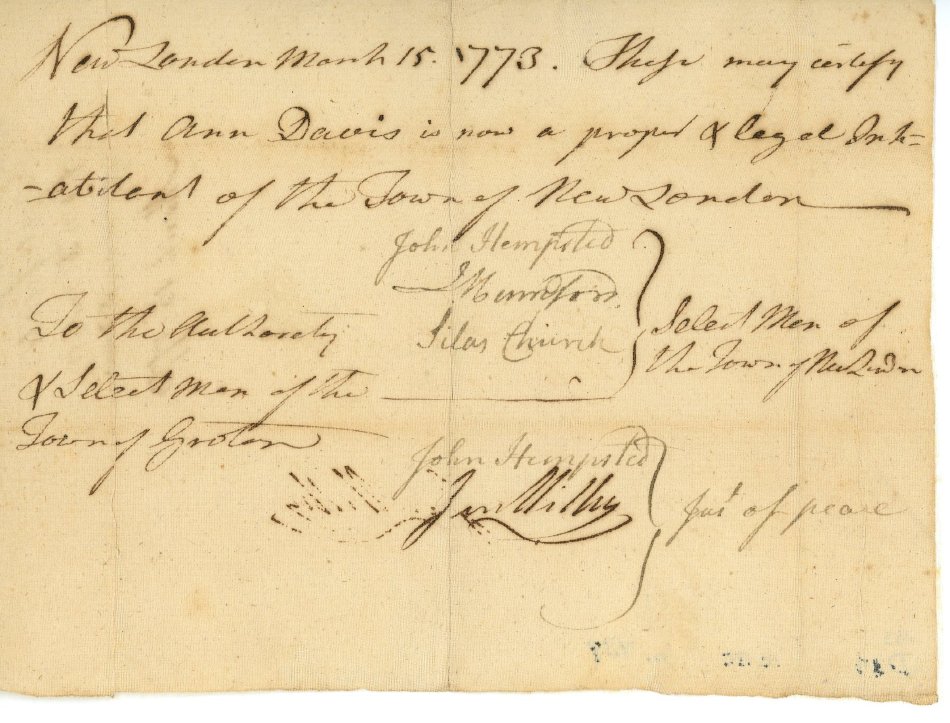 New London March 15. 1773. These may certify
that Ann Davis is now a proper & legal Inh=
=abitant of the Town of New London
John Hempsted
J Mumford
Silas Church
Select Men of
the Town of New Lond
To the Authority
& Select Men of the
Town of Groton
John Hempsted
Jus of peace